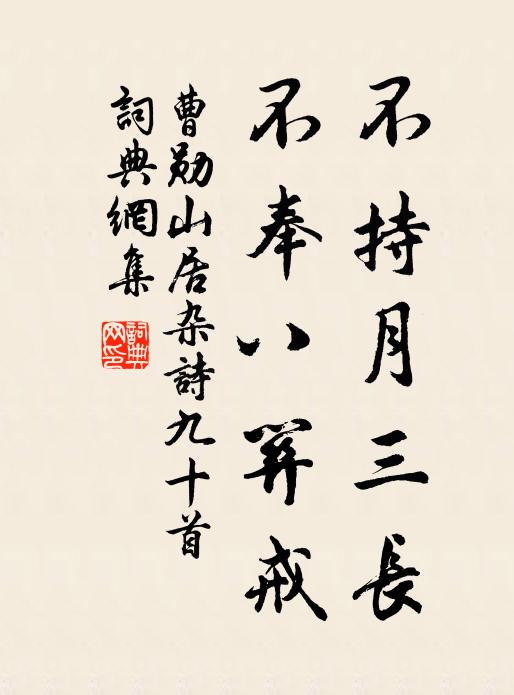 不持月三長
不奉八关戒
曹勋山居杂詩九十首
詞典網集
詞典
网印